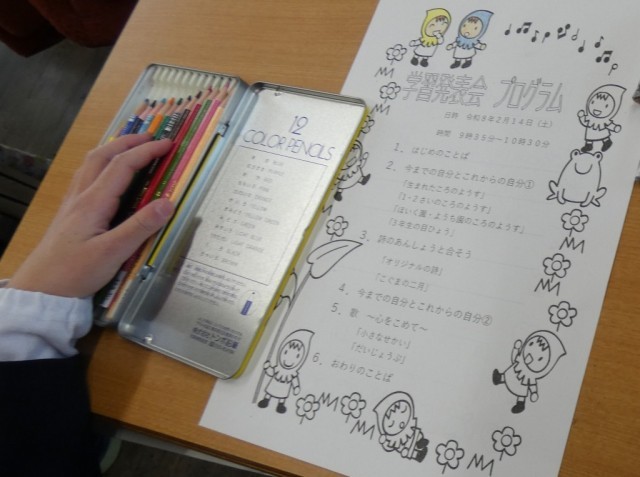 学習発表会 プログラム
日時 令和8年2月14日（土）
時間 9時35分～10時30分
1. はじめのことば
2. 今までの自分とこれからの自分①
「生まれたころのようす」
「1～2さいのころのようす」
「ほいく園・ようち園のころのようす」
「3年生の目ひょう」
3. 詩のあんしょうと合そう
「オリジナルの詩」
「こぐまの二月」
4. 今までの自分とこれからの自分②
5. 歌 ～心をこめて～
「小さなせかい」
「だいじょうぶ」
6. おわりのことば
12
COLOR PENCILS